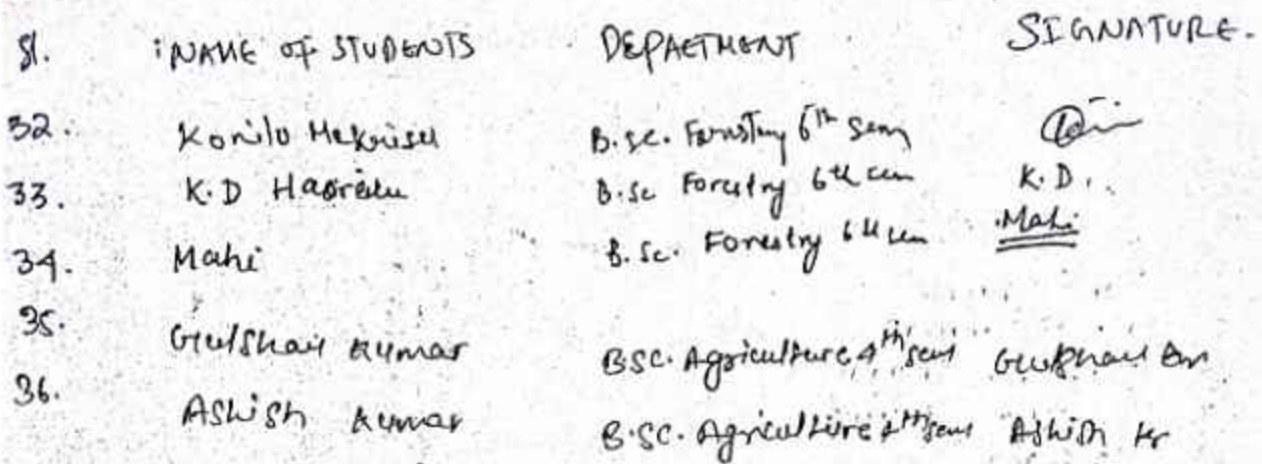 Sl. NAME OF STUDENTS DEPAETMENT SIGNATURE.
32. Konilo B.sc. Forestry 6th Sem
33. K.D B.sc Forestry 6th sem K.D.
34. Mahi B.sc. Forestry 6th sem Mahi
35. Gulshan Kumar BSC. Agriculture 4th sem Gulshan Kr
36. Ashish Kumar B.SC. Agriculture 4th sem Ashish Kr